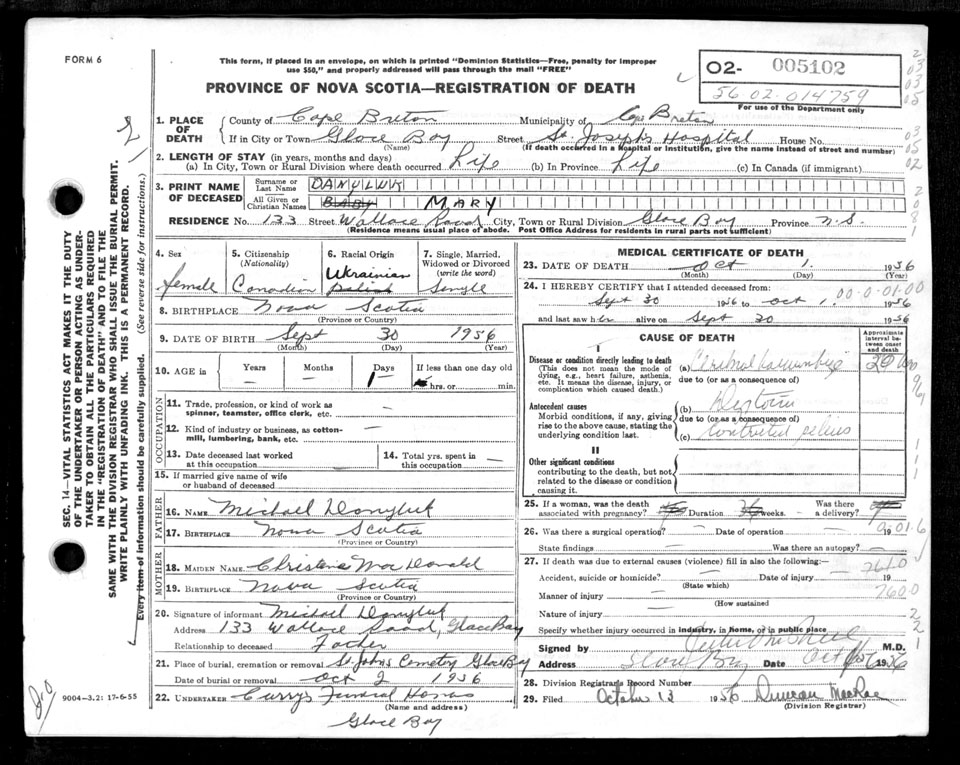 FORM 6
This form, if placed in an envelope, on which is printed "Dominion Statistics—Free, penalty for improper
use $50," and properly addressed will pass through the mail "FREE"
PROVINCE OF NOVA SCOTIA—REGISTRATION OF DEATH
02- 005102
56 02-014759
For use of the Department only
1. PLACE OF DEATH
County of Cape Breton Municipality of Cape Breton
If in City or Town Glace Bay Street St. Joseph's Hospital House No.
(Name) (If death occurred in a Hospital or Institution, give the name instead of street and number)
2. LENGTH OF STAY (in years, months and days)
(a) In City, Town or Rural Division where death occurred Life (b) In Province Life (c) In Canada (if immigrant)
3. PRINT NAME OF DECEASED
Surname or Last Name DANYLUK
All Given or Christian Names BABY MARY
RESIDENCE No. 133 Street Wallace Road City, Town or Rural Division Glace Bay Province N.S.
(Residence means usual place of abode. Post Office Address for residents in rural parts not sufficient)
4. Sex Female
5. Citizenship (Nationality) Canadian
6. Racial Origin Ukrainian Polish
7. Single, Married, Widowed or Divorced (write the word) Single
8. BIRTHPLACE Nova Scotia
(Province or Country)
9. DATE OF BIRTH Sept 30 1956
(Month) (Day) (Year)
10. AGE in Years — Months — Days 1 If less than one day old hrs. or min.
OCCUPATION
11. Trade, profession, or kind of work as
spinner, teamster, office clerk, etc. —
12. Kind of industry or business, as cotton-
mill, lumbering, bank, etc. —
13. Date deceased last worked
at this occupation —
14. Total yrs. spent in
this occupation —
15. If married give name of wife
or husband of deceased
FATHER
16. NAME Michael Danyluk
17. BIRTHPLACE Nova Scotia
(Province or Country)
MOTHER
18. MAIDEN NAME Christena MacDonald
19. BIRTHPLACE Nova Scotia
(Province or Country)
20. Signature of informant Michael Danyluk
Address 133 Wallace Road, Glace Bay
Relationship to deceased Father
21. Place of burial, cremation or removal St. Johns Cemetery Glace Bay
Date of burial or removal Oct 2 1956
22. UNDERTAKER Curry's Funeral Home
(Name and address)
Glace Bay
MEDICAL CERTIFICATE OF DEATH
23. DATE OF DEATH Oct 1 1956
(Month) (Day) (Year)
24. I HEREBY CERTIFY that I attended deceased from:
Sept 30 1956 to Oct 1 1956
00-0-01-00
and last saw her alive on Sept 30 1956
CAUSE OF DEATH
Approximate interval between onset and death
Disease or condition directly leading to death
(This does not mean the mode of dying, e.g., heart failure, asthenia, etc. It means the disease, injury, or complication which caused death.)
(a) Cerebral 20
due to (or as a consequence of)
Antecedent causes
Morbid conditions, if any, giving rise to the above cause, stating the underlying condition last.
(b)
due to (or as a consequence of)
(c) Contracted pelvis
II
Other significant conditions
contributing to the death, but not related to the disease or condition causing it.
25. If a woman, was the death
associated with pregnancy? Duration weeks. — Was there
a delivery?
26. Was there a surgical operation? — Date of operation 19
State findings Was there an autopsy? —
27. If death was due to external causes (violence) fill in also the following:—
Accident, suicide or homicide? — Date of injury 19
(State which)
7610
Manner of injury
(How sustained
7600
Nature of injury
Specify whether injury occurred in industry, in home, or in public place
Signed by M.D.
Address Glace Bay Date Oct 1956
28. Division Registrars Record Number
29. Filed October 13 1956 Duncan MacRae
(Division Registrar)
SEC. 14—VITAL STATISTICS ACT MAKES IT THE DUTY
OF THE UNDERTAKER OR PERSON ACTING AS UNDER-
TAKER TO OBTAIN ALL THE PARTICULARS REQUIRED
IN THE "REGISTRATION OF DEATH" AND TO FILE THE
SAME WITH THE DIVISION REGISTRAR WHO SHALL ISSUE THE BURIAL PERMIT.
WRITE PLAINLY WITH UNFADING INK. THIS IS A PERMANENT RECORD.
Every item of information should be carefully supplied. (See reverse side for instructions.)
9004-3.2: 17-6-55